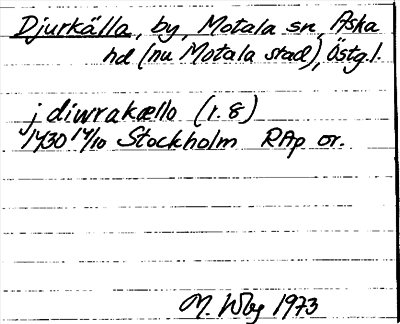 Djurkälla, by, Motala sn, Aska
hd (nu Motala stad), Östg.l.
j diwrakællo (r. 8)
1430 14/10 Stockholm RAp or.
M. Wbg 1973